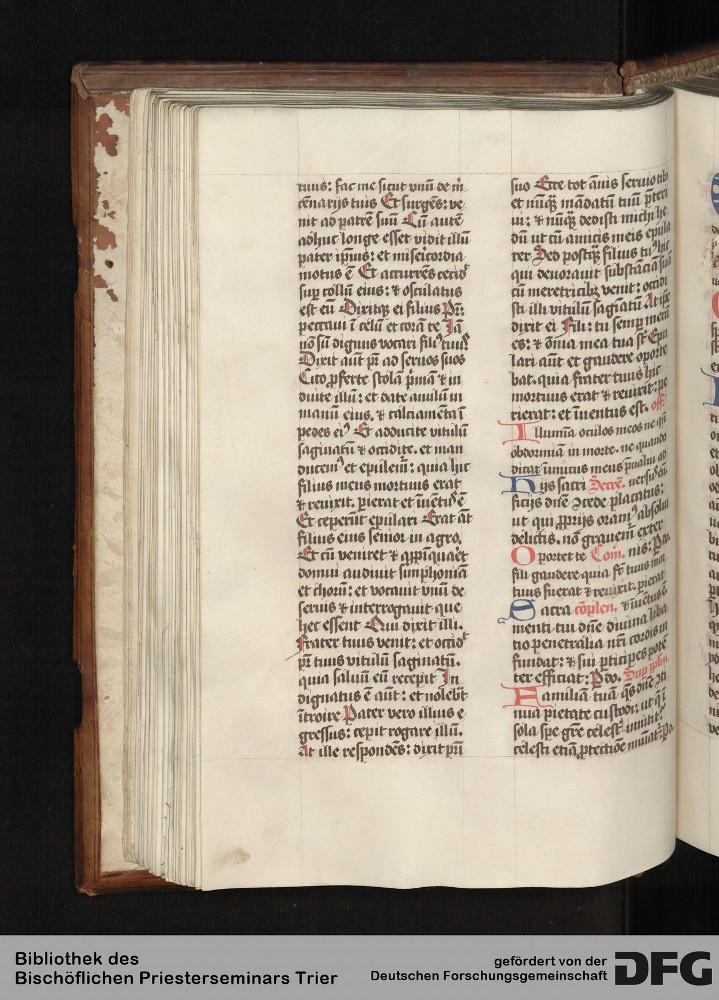 tuus: fac me sicut vnū de m̄
cēnarijs tuis Et surgēs: ve
nit ad patrē suū Cū autē
adhuc longe esset vidit illū
pater ipsius: et misericordia
motus ē Et accurrēs cecid᷑
sup collū eius: ⁊ osculatus
est eū Dixitqꝫ ei filius Pr̄:
peccaui ī celū et corā te Iā
nō sū dignus vocari filiꝰ tuus
Dixit aūt pr̄ ad seruos suos
Cito ꝓferte stolā pͥmā ⁊ in
duite illū: et date anulū in
manū eius. ⁊ calciamēta ī
pedes eiꝰ Et adducite vitulū
saginatū ⁊ occidite. et man
ducemꝰ et epulem̄: quia hic
filius meus mortuus erat
⁊ reuixit. perierat et īuētꝰ ē
Et ceperūt epulari Erat āt
filius eius senior in agro.
Et cū veniret ⁊ appīquaret
domui audiuit simphoniā
et chorū: et vocauit vnū de
seruis ⁊ interrogauit que
hec essent Qui dixit illi.
Frater tuus venit: et occid᷑
pr̄ tuus vitulū saginatū.
quia saluū eū recepit In
dignatus ē aūt: et nolebat
ītroire Pater vero illius e
gressus: cepit rogare illū.
At ille respondēs: dixit pr̄i
suo Ecce tot ānis seruio tibi
et nūqꝫ mādatū tuū p̄teri
ui: ⁊ nūqꝫ dedisti michi he
dū ut cū amicis meis epula
rer Sed postqꝫ filius tuꝰ hic
qui deuorauit substāciā suā
cū meretricibꝫ venit: occidi
sti illi vitulū sagīatū At ipse
dixit ei Fili: tu semp mecū
es: ⁊ oīa mea tua sūt Epu
lari aūt et gaudere oporte
bat. quia frater tuus hic
mortuus erat ⁊ reuixit: pe
rierat: et īuentus est. off.
Illumīa oculos meos ne qn̄
obdormiā in morte. ne quando
dicat īimicus meus p̄ualui ad
Hijs sacri Secre. versus eū
ficijs dn̄e ↄcede placatus:
ut qui ꝓprijs oramꝰ absolui
delictis. nō grauem̄ exter
Oportet te Com. nis: P.
fili gaudere quia fr̄ tuus mor
tuus fuerat ⁊ reuixit. perierat
Sacra cōplen. ⁊ īuētus ē
menti tui dn̄e diuina liba
tio penetralia nr̄i cordis in
fundat: ⁊ sui pticipes potē
ter efficiat: P do. Sup ppl̄m.
Familiā tuā qs dn̄e ↄti
nua pietate custodi: ut q̄ ī
sola spe gr̄e celestꝭ innititꝰ
celesti etiā ꝓtectiōe muniat᷑: P
Bibliothek des
Bischöflichen Priesterseminars Trier
gefördert von der
Deutschen Forschungsgemeinschaft
DFG